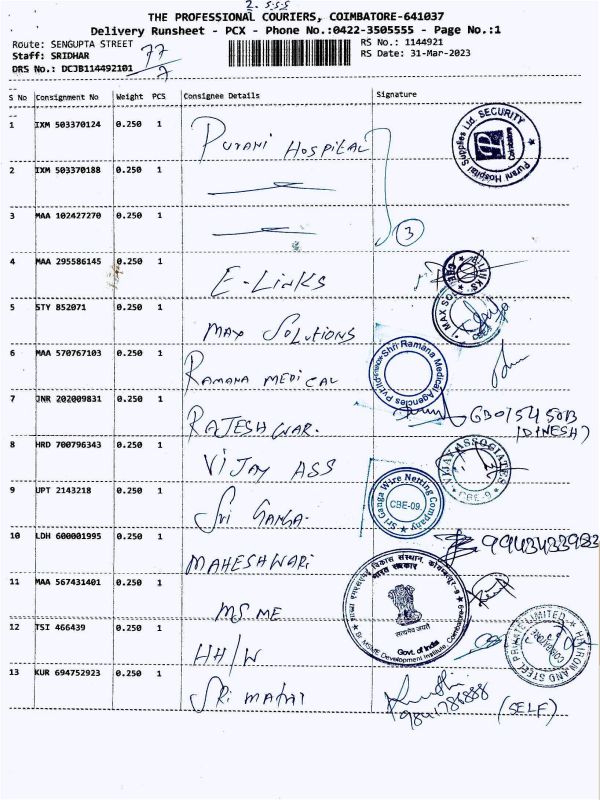 2.555
THE PROFESSIONAL COURIERS, COIMBATORE-641037
Delivery Runsheet - PCX - Phone No.:0422-3505555 - Page No.:1
Route: SENGUPTA STREET RS No.: 1144921
Staff: SRIDHAR 77/7 RS Date: 31-Mar-2023
DRS No.: DCJB114492101
S No Consignment No Weight PCS Consignee Details Signature
1 IXM 503370124 0.250 1 PURANI HOSPITAL Purani Hospital Supplies Ltd. SECURITY Coimbatore
2 IXM 503370188 0.250 1
3 MAA 102427270 0.250 1 3
4 MAA 295586145 0.250 1 E-LINKS
5 STY 852071 0.250 1 MAX SOLUTIONS
6 MAA 570767103 0.250 1 RAMANA MEDICAL Shri Ramana Medical Agencies
7 JNR 202009831 0.250 1 RAJESHWAR. (DINESH)
8 HRD 700796343 0.250 1 VIJAY ASS VIJAY ASSOCIATES CBE-9
9 UPT 2143218 0.250 1 Sri GANGA. Sri Ganga Wire Netting Company CBE-09.
10 LDH 600001995 0.250 1 MAHESHWARI
11 MAA 567431401 0.250 1 MSME भारत सरकार सत्यमेव जयते Govt. of India MSME Development Institute, Coimbatore
12 TSI 466439 0.250 1 HH/W IRON AND STEEL PRIVATE LIMITED
13 KUR 694752923 0.250 1 (SELF)